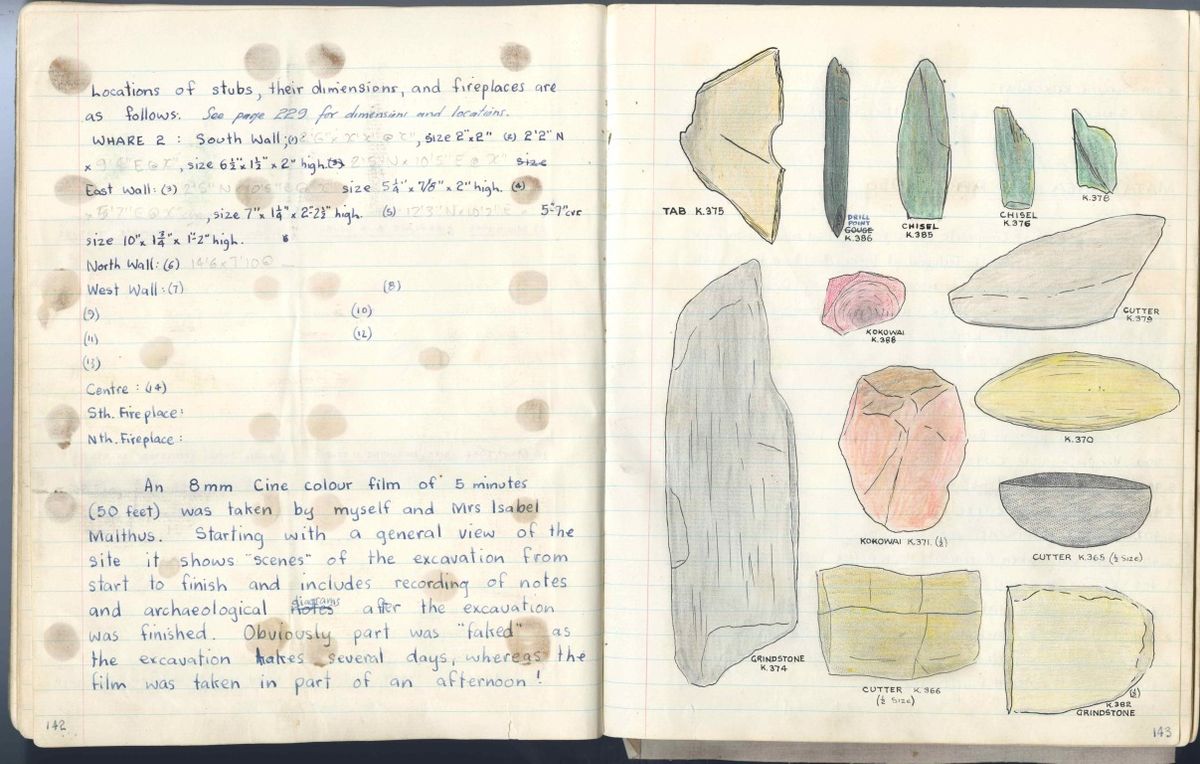 Locations of stubs, their dimensions, and fireplaces are
as follows: See page 229 for dimensions and locations.
WHARE 2 : South Wall; (1) , size 2"x2" (2) 2'2" N
x , size 6½"x 1½" x 2" high. (3) 2'5" N x 10'5" E @ X" size
East Wall: (3) 2'5" N x 10'5" E @ size 5¼" x 7/8" x 2" high. (4)
x 5'7" E @ X" , size 7"x 1¼" x 2"-2½" high. (5) 12'3" N x 10'2" E x 5"-7" cvr
size 10"x 1¾" x 1"-2" high.
North Wall: (6) 14'6 x 7'10 @
West Wall: (7) (8)
(9) (10)
(11) (12)
(13)
Centre : (14)
Sth. Fireplace:
Nth. Fireplace :
An 8mm Cine colour film of 5 minutes
(50 feet) was taken by myself and Mrs Isabel
Malthus. Starting with a general view of the
site it shows "scenes" of the excavation from
start to finish and includes recording of notes
and archaeological notes diagrams after the excavation
was finished. Obviously part was "faked" as
the excavation takes several days, whereas the
film was taken in part of an afternoon!
142
TAB K.375
DRILL
POINT
GOUGE
K.386
CHISEL
K.385
CHISEL
K.376
K.378
KOKOWAI
K.388
CUTTER
K.379
K.370
KOKOWAI K.371. (½)
CUTTER K.365 (½ SIZE)
GRINDSTONE
K.374
CUTTER K.366
(½ SIZE)
(½)
K.382
GRINDSTONE
143